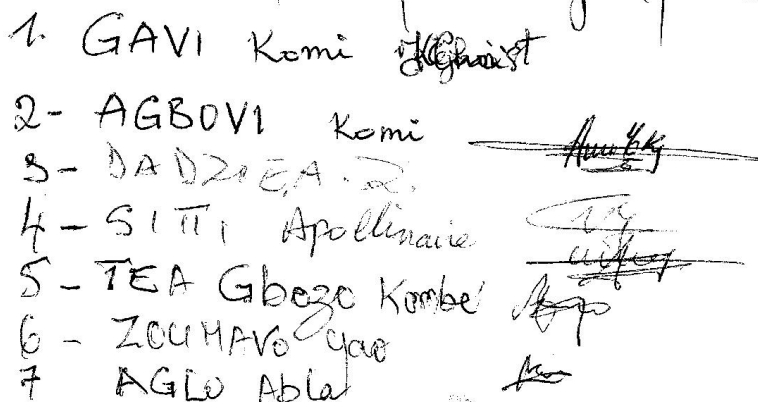 1. GAVI Komi
2- AGBOVI Komi
3- DADZIE A. Z.
4- SITTI Apollinaire
5- TEA Gbozo Kombé
6- ZOUMAVO Yao
7 AGLO Abla